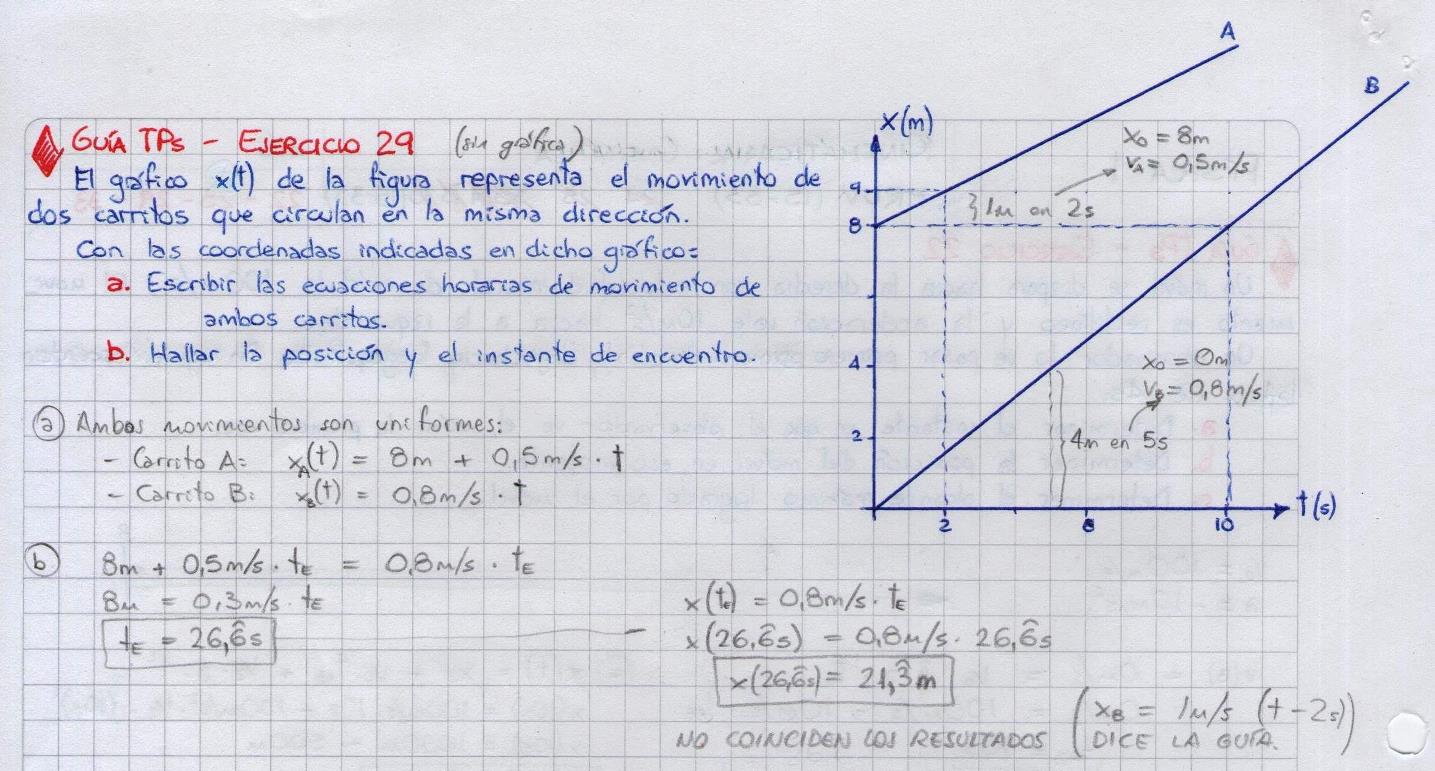 GUÍA TPs - EJERCICIO 29 (sin gráfica)
El gráfico x(t) de la figura representa el movimiento de
dos carritos que circulan en la misma dirección.
Con las coordenadas indicadas en dicho gráfico:
a. Escribir las ecuaciones horarias de movimiento de
ambos carritos.
b. Hallar la posición y el instante de encuentro.
A
B
x(m)
x₀ = 8m
v_A = 0,5m/s
9
1m en 2s
8
x₀ = 0m
v_B = 0,8m/s
4
4m en 5s
2
t(s)
2
6
10
a Ambos movimientos son uniformes:
- Carrito A: x_A(t) = 8m + 0,5m/s · t
- Carrito B: x_B(t) = 0,8m/s · t
b 8m + 0,5m/s · t_E = 0,8m/s · t_E
8m = 0,3m/s · t_E
t_E = 26,6̂s
x(t_E) = 0,8m/s · t_E
x(26,6̂s) = 0,8m/s · 26,6̂s
x(26,6̂s) = 21,3̂m
NO COINCIDEN LOS RESULTADOS
(x_B = 1m/s (t - 2s)
DICE LA GUÍA.)